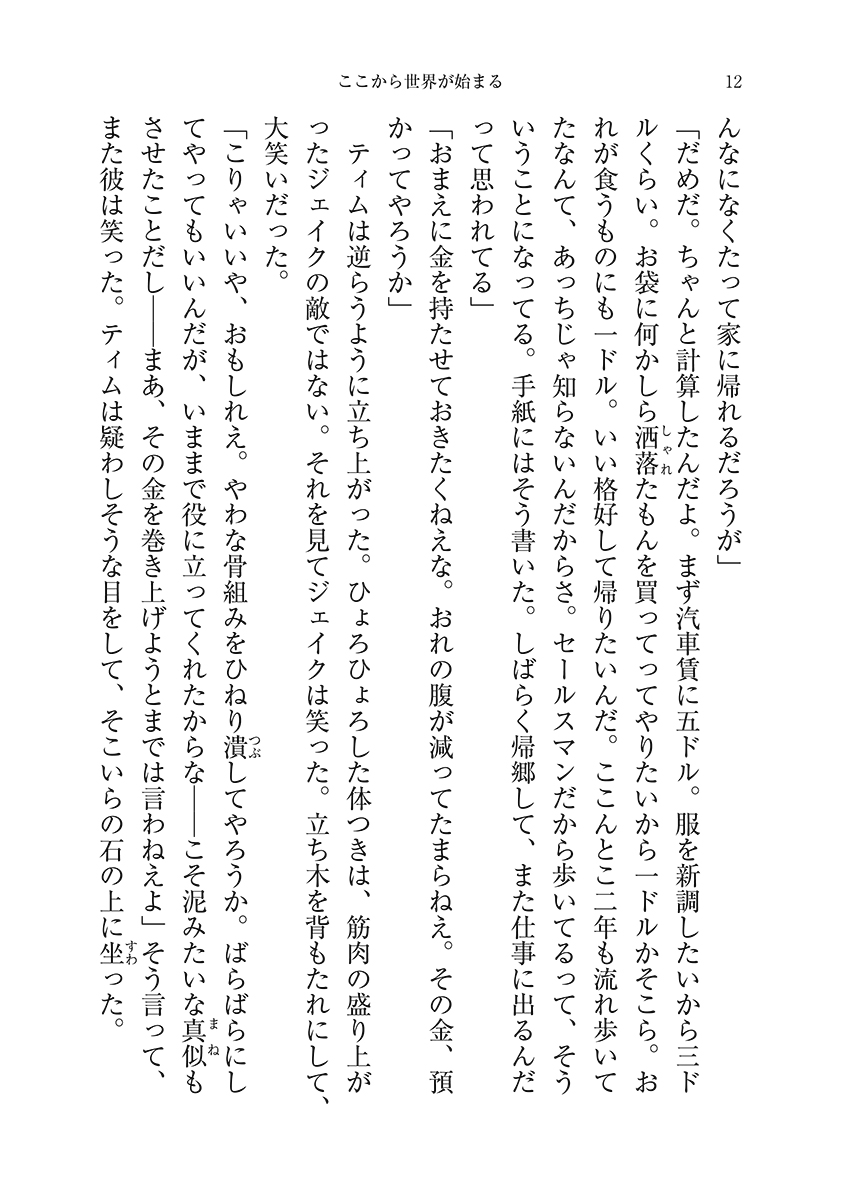 ここから世界が始まる
12
んなになくたって家に帰れるだろうが」
「だめだ。ちゃんと計算したんだよ。まず汽車賃に五ドル。服を新調したいから三ド
ルくらい。お袋に何かしら洒落たもんを買ってってやりたいから一ドルかそこら。お
れが食うものにも一ドル。いい格好して帰りたいんだ。ここんとこ二年も流れ歩いて
たなんて、あっちじゃ知らないんだからさ。セールスマンだから歩いてるって、そう
いうことになってる。手紙にはそう書いた。しばらく帰郷して、また仕事に出るんだ
って思われてる」
「おまえに金を持たせておきたくねえな。おれの腹が減ってたまらねえ。その金、預
かってやろうか」
　ティムは逆らうように立ち上がった。ひょろひょろした体つきは、筋肉の盛り上が
ったジェイクの敵ではない。それを見てジェイクは笑った。立ち木を背もたれにして、
大笑いだった。
「こりゃいいや、おもしれえ。やわな骨組みをひねり潰してやろうか。ばらばらにし
てやってもいいんだが、いままで役に立ってくれたからな――こそ泥みたいな真似も
させたことだし――まあ、その金を巻き上げようとまでは言わねえよ」そう言って、
また彼は笑った。ティムは疑わしそうな目をして、そこいらの石の上に坐った。
しゃれ
つぶ
まね
すわ